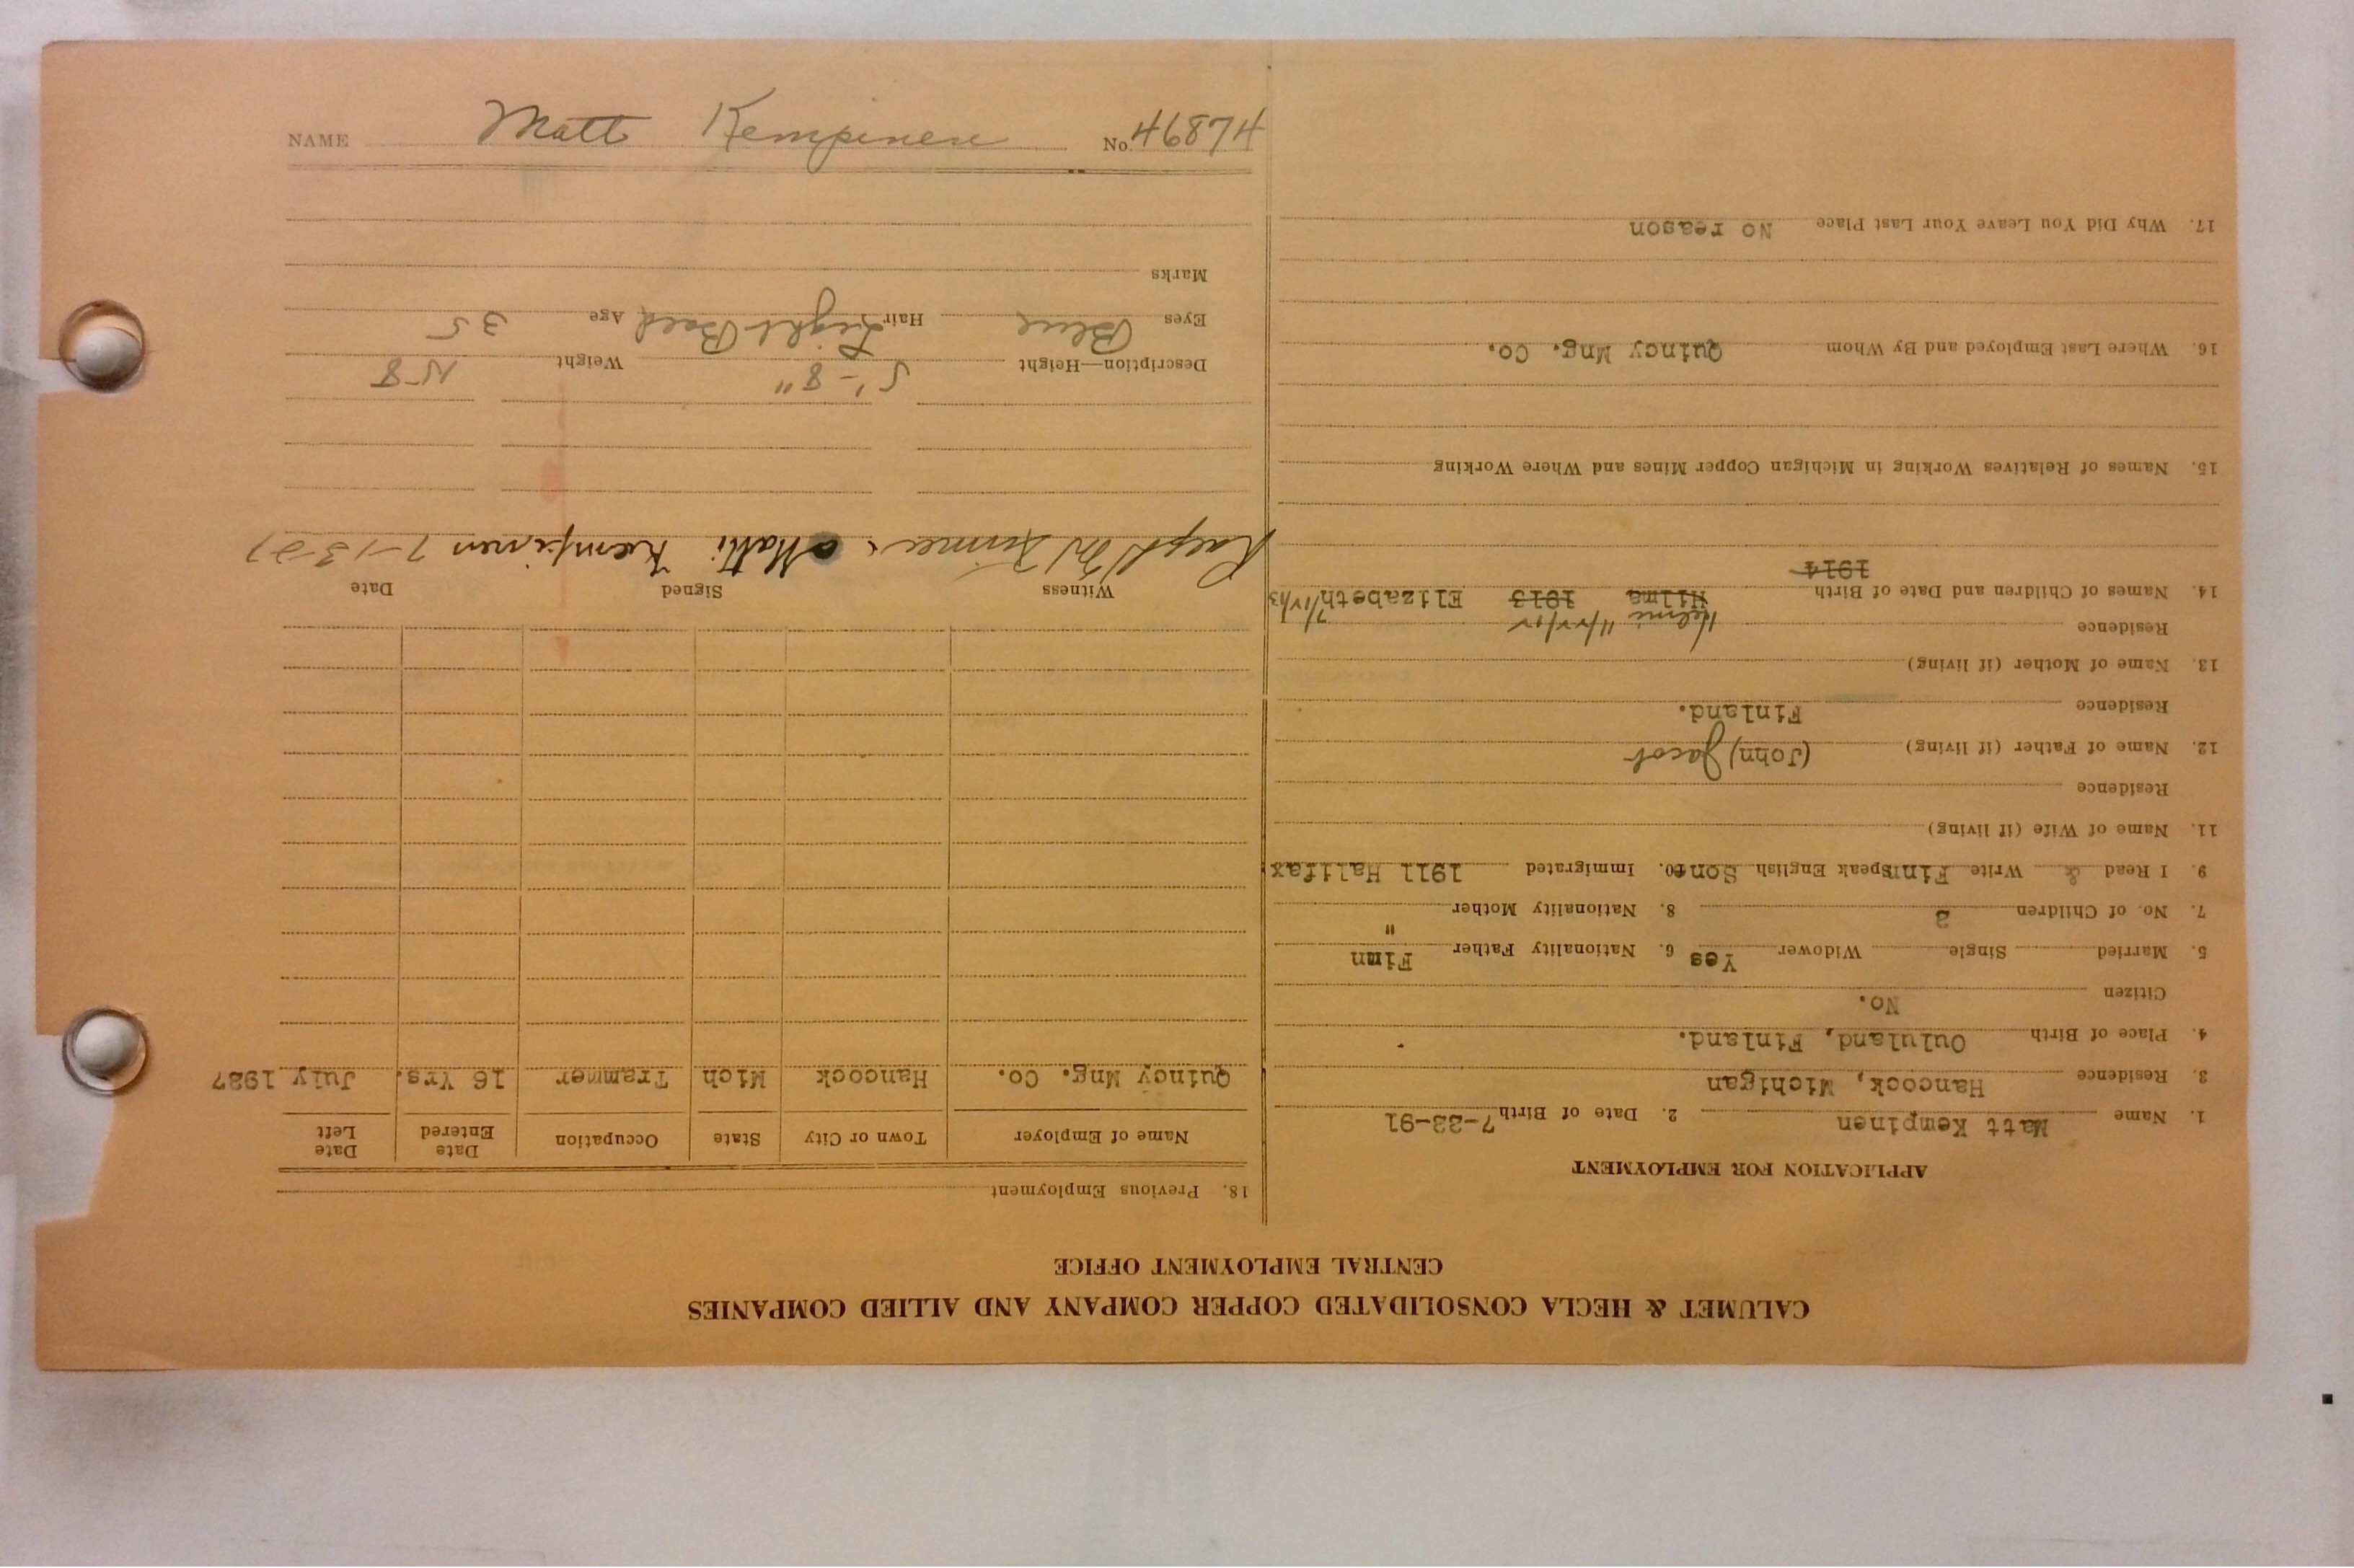 CALUMET & HECLA CONSOLIDATED COPPER COMPANY AND ALLIED COMPANIES
CENTRAL EMPLOYMENT OFFICE
APPLICATION FOR EMPLOYMENT
1. Name Matt Kempinen 2. Date of Birth 7-22-91
3. Residence Hancock, Michigan
4. Place of Birth Oululand, Finland.
Citizen No.
5. Married Single Widower Yes 6. Nationality Father Finn
7. No. of Children 2 8. Nationality Mother "
9. I Read & Write Finn Speak English Some 10. Immigrated 1911 Halifax
11. Name of Wife (if living)
Residence
12. Name of Father (if living) (John) Jacob
Residence Finland.
13. Name of Mother (if living)
Residence
Helmi 11/22/12
14. Names of Children and Date of Birth Hilma 1913 Elizabeth
1914
15. Names of Relatives Working in Michigan Copper Mines and Where Working
16. Where Last Employed and By Whom Quincy Mng. Co.
17. Why Did You Leave Your Last Place No reason
18. Previous Employment
Name of Employer Town or City State Occupation Date Entered Date Left
Quincy Mng. Co. Hancock Mich Trammer 16 Yrs. July 1927
Witness Signed Date
Matti Kempinen 7-13-27
Description—Height 5'-8" Weight 158
Eyes Blue Hair Light Bald Age 35
Marks
NAME Matt Kempinen No. 46874